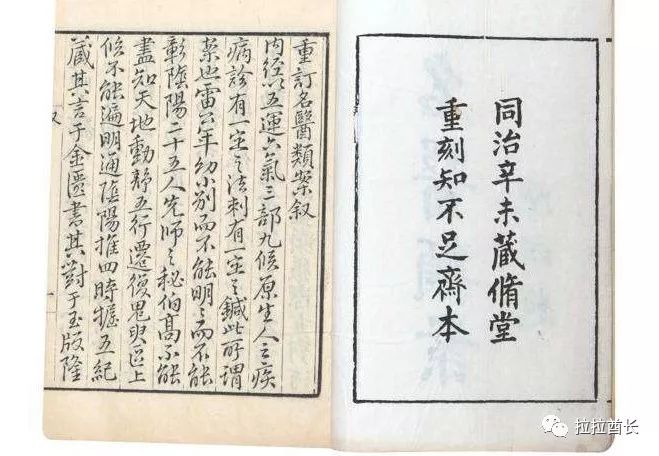 同治辛未藏脩堂
重刻知不足齋本
重訂名醫類案叙
内經以五運六氣三部九候原生人之疾
病診有一定之法刺有一定之鍼此所謂
業也雷公年幼小別而不能明〻而不能
彰隂陽二十五人先師之秘伯髙不能
盡知天地動静五行遷復鬼臾區上
候不能遍明通隂陽推四時握五紀
蔵其言于金匱書其對于玉版隆
拉拉酋长